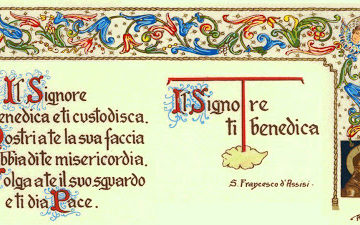 Il Signore
enedica e ti custodisca.
ostri a te la sua faccia
bbia di te misericordia.
olga a te il suo sguardo
e ti dia Pace.
Il Signore
ti benedica
S. Francesco d'Assisi.